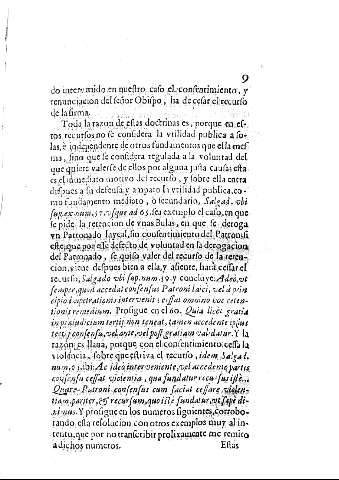 9
do intervenido en nuestro caso el consentimiento, y
renunciacion del señor Obispo, ha de cesar el recurso
de la firma.
Toda la razon de estas doctrinas es, porque en es-
tos recursos no se considera la vtilidad publica a so-
las, è independente de otros fundamentos que ella mes
ma, sino que se considera regulada a la voluntad del
que quiere valerse de ellos por alguna justa causa esta
es el inmediato motivo del recurso, y sobre ella entra
despues a su defensa y amparo la vtilidad publica, co-
mo fundamento mediato, ò secundario, Salgad. vbi
sup. ex num. 57. vsque ad 65. sea exemplo el caso, en que
se pide la retencion de vnas Bulas, en que se deroga
vn Patronado laycal, sin consentimiento del Patron, si
este, que por esse defecto de voluntad en la derogacion
del Patronado, se quiso valer del recurso de la reten-
cion, viene despues bien a ella, y asiente, harà cessar el
recurso, Salgado vbi sup. num. 59. y concluye. Adeo, vt
semper, quod accedat consensus Patroni laici, vel à prin
cipio impetrationis intervenit: cessat omnino vve reten-
tionis remedium. Prosigue en el 60. Quia licèt gratia
in præiudicium tertij non teneat, tamen accedente ipsius
tertij consensu, vel ante, vel post gratiam validatur. Y la
razon es llana, porque con el consentimiento cessa la
violencia, sobre que estriva el recurso, idem Salgad.
num. 61. ibi: Ac ideo interveniente, vel accedente partis
consensu cessat violentia, qua fundatur recursus iste...
Quare Patroni consensus cum faciat cessare violen-
tiam, pariter, & recursum, quo iste fundatur, vt sæpè di-
ximus. Y prosigue en los numeros siguientes, corrobo-
rando esta resolucion con otros exemplos muy al in-
tento, que por no transcribir prolixamente me remito
a dichos numeros.
Estas